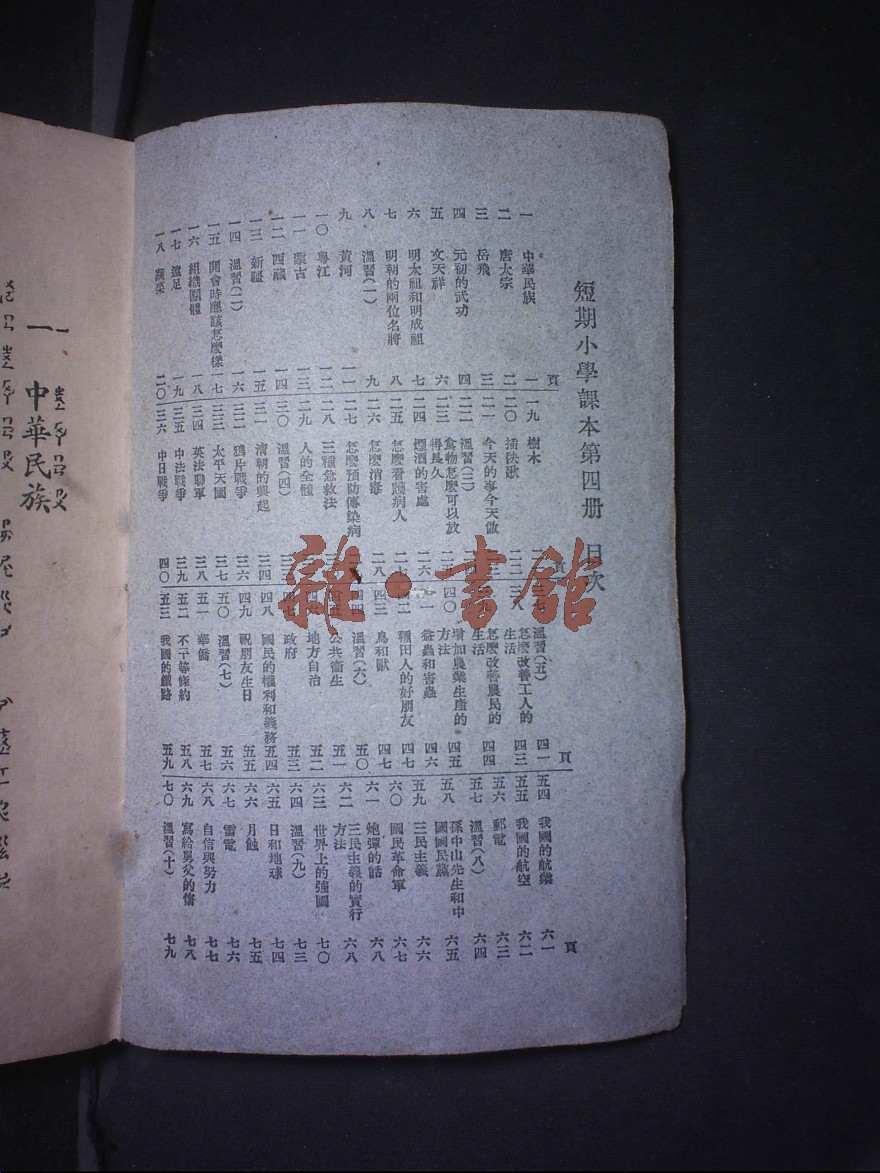 短期小學課本第四册 目次
頁
一 中華民族 一
二 唐太宗 二
三 岳飛 三
四 元初的武功 四
五 文天祥 六
六 明太祖和明成祖 七
七 明朝的兩位名將 八
八 溫習(一) 九
九 黃河 一一
一〇 粵江 一二
一一 蒙古 一三
一二 西藏 一四
一三 新疆 一五
一四 溫習(二) 一六
一五 開會時應該怎麽樣 一七
一六 組織團體 一八
一七 遠足 一九
一八 蔬菜 二〇
一九 樹木
二〇 插秧歌 二二
二一 今天的事今天做
二二 溫習(三)
二三 食物怎麽可以放
得長久 二五
二四 煙酒的害處 二六
二五 怎麽看護病人 二七
二六 怎麽消毒 二八
二七 怎麽預防傳染病
二八 三種急救法
二九 人的全體
三〇 溫習(四) 三三
三一 清朝的興起 三四
三二 鴉片戰爭 三六
三三 太平天國 三七
三四 英法聯軍 三八
三五 中法戰爭 三九
三六 中日戰爭 四〇
頁
三七 溫習(五) 四一
三八 怎麽改善工人的
生活 四三
怎麽改善農民的
生活 四四
四〇 增加農業生產的
方法 四五
益蟲和害蟲 四六
四二 種田人的好朋友 四七
四三 鳥和獸 四七
四四 溫習(六) 五〇
公共衞生 五一
地方自治 五二
四七 政府 五三
四八 國民的權利和義務 五四
四九 祝朋友生日 五五
五〇 溫習(七) 五六
五一 華僑 五七
五二 不平等條約 五八
五三 我國的鐵路 五九
頁
五四 我國的航業 六一
五五 我國的航空 六二
五六 郵電 六三
五七 溫習(八) 六四
五八 孫中山先生和中
國國民黨 六五
五九 三民主義 六六
六〇 國民革命軍 六七
六一 炮彈的話 六八
六二 三民主義的實行
方法 六八
六三 世界上的強國 七〇
六四 溫習(九) 七三
六五 日和地球 七四
六六 月蝕 七五
六七 雷電 七六
六八 自信與努力 七七
六九 寫給舅父的信 七八
七〇 溫習(十) 七九
一 中華民族
雜·書館